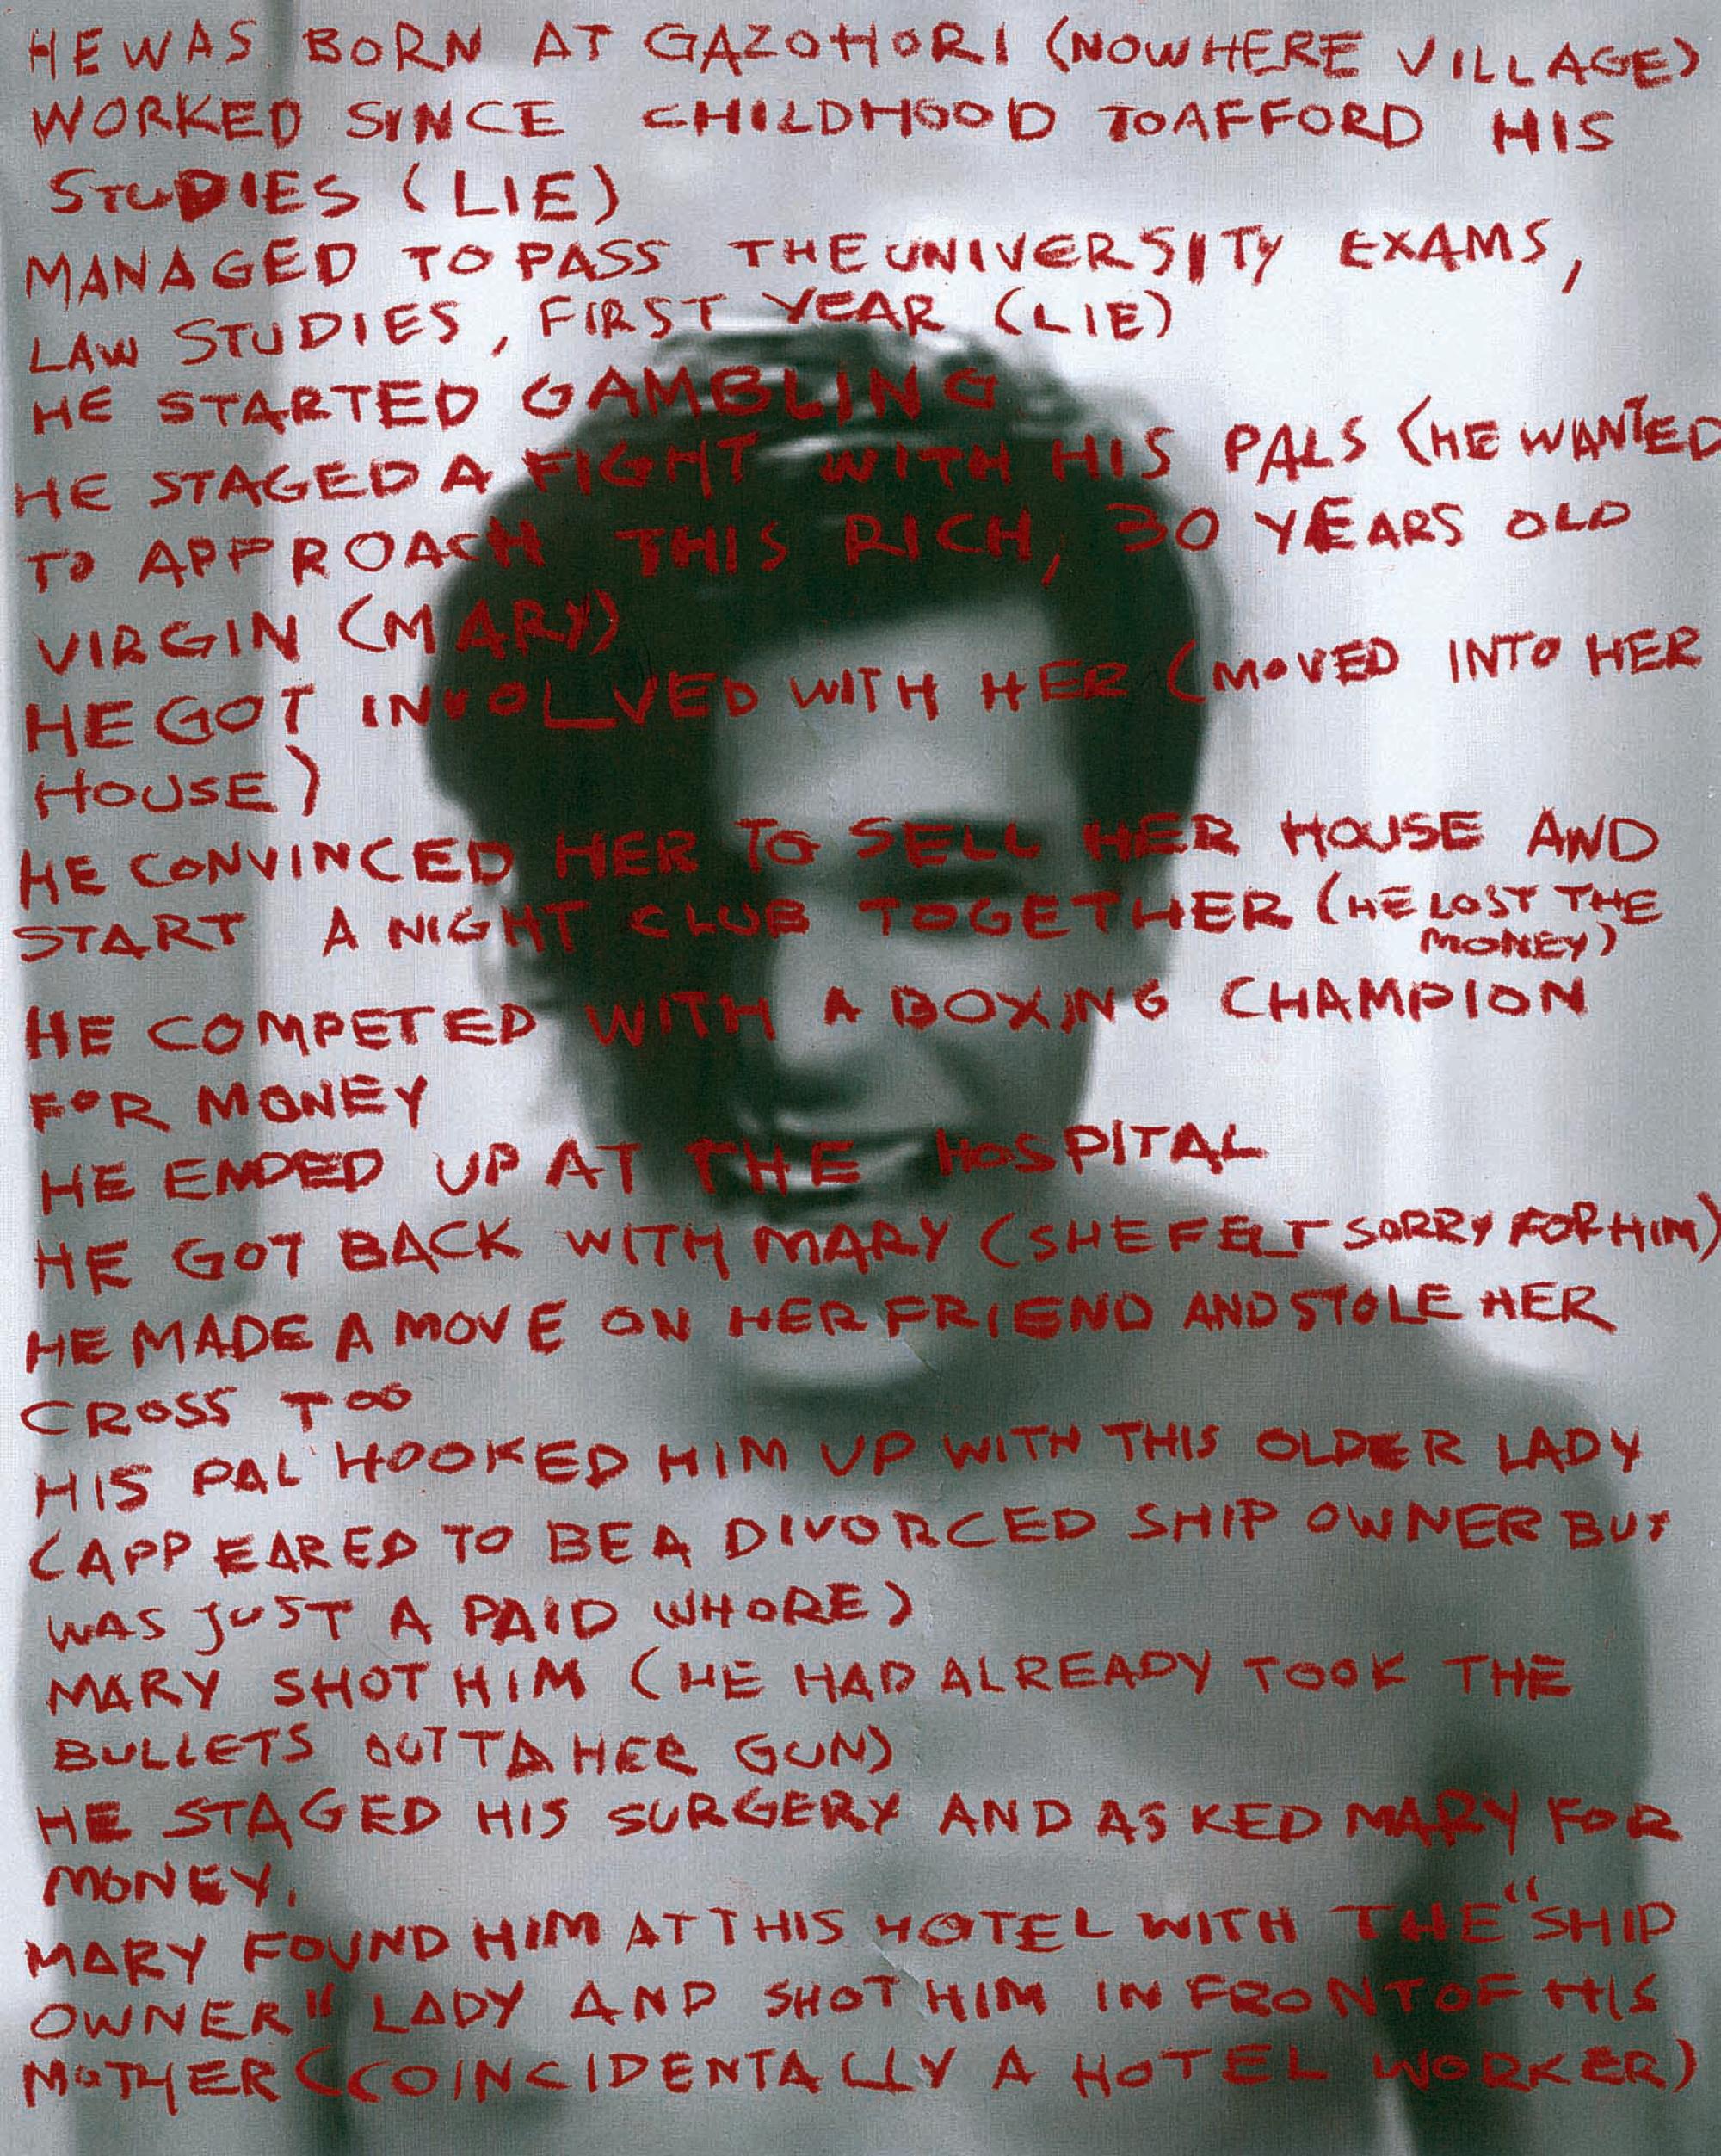 HE WAS BORN AT GAZOHORI (NOWHERE VILLAGE)
WORKED SINCE CHILDHOOD TO AFFORD HIS
STUDIES (LIE)
MANAGED TO PASS THE UNIVERSITY EXAMS,
LAW STUDIES, FIRST YEAR (LIE)
HE STARTED GAMBLING
HE STAGED A FIGHT WITH HIS PALS (HE WANTED
TO APPROACH THIS RICH, 30 YEARS OLD
VIRGIN (MARY)
HE GOT INVOLVED WITH HER (MOVED INTO HER
HOUSE)
HE CONVINCED HER TO SELL HER HOUSE AND
START A NIGHT CLUB TOGETHER (HE LOST THE
MONEY)
HE COMPETED WITH A BOXING CHAMPION
FOR MONEY
HE ENDED UP AT THE HOSPITAL
HE GOT BACK WITH MARY (SHE FELT SORRY FOR HIM)
HE MADE A MOVE ON HER FRIEND AND STOLE HER
CROSS TOO
HIS PAL HOOKED HIM UP WITH THIS OLDER LADY
(APPEARED TO BE A DIVORCED SHIP OWNER BUT
WAS JUST A PAID WHORE)
MARY SHOT HIM (HE HAD ALREADY TOOK THE
BULLETS OUTTA HER GUN)
HE STAGED HIS SURGERY AND ASKED MARY FOR
MONEY.
MARY FOUND HIM AT THIS HOTEL WITH THE "SHIP
OWNER" LADY AND SHOT HIM IN FRONT OF HIS
MOTHER (COINCIDENTALLY A HOTEL WORKER)